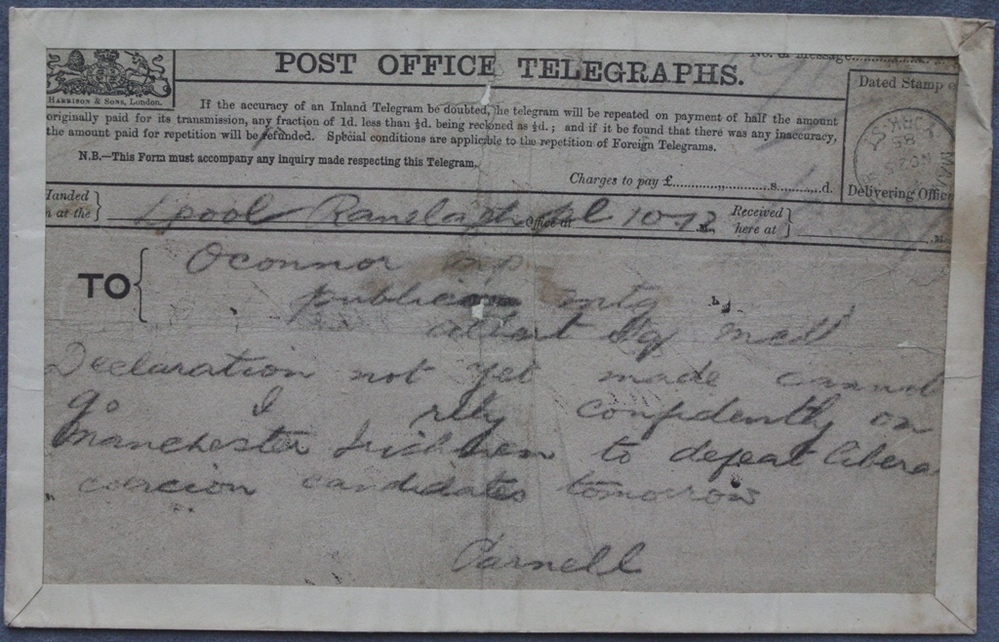 No. of Message
POST OFFICE TELEGRAPHS.
HARRISON & SONS, London.
Dated Stamp
If the accuracy of an Inland Telegram be doubted, the telegram will be repeated on payment of half the amount
originally paid for its transmission, any fraction of 1d. less than ½d. being reckoned as ½d.; and if it be found that there was any inaccuracy,
the amount paid for repetition will be refunded. Special conditions are applicable to the repetition of Foreign Telegrams.
N.B.—This Form must accompany any inquiry made respecting this Telegram.
Charges to pay £ s d.
Delivering Office
Handed
in at the
Lpool Ranelagh
Office at
Received
here at
TO
Oconnor mp
mtg
Sq
Declaration not yet made cannot
go I rely confidently on
Manchester Irishmen to defeat libera
coercion candidates tomorrow
Parnell